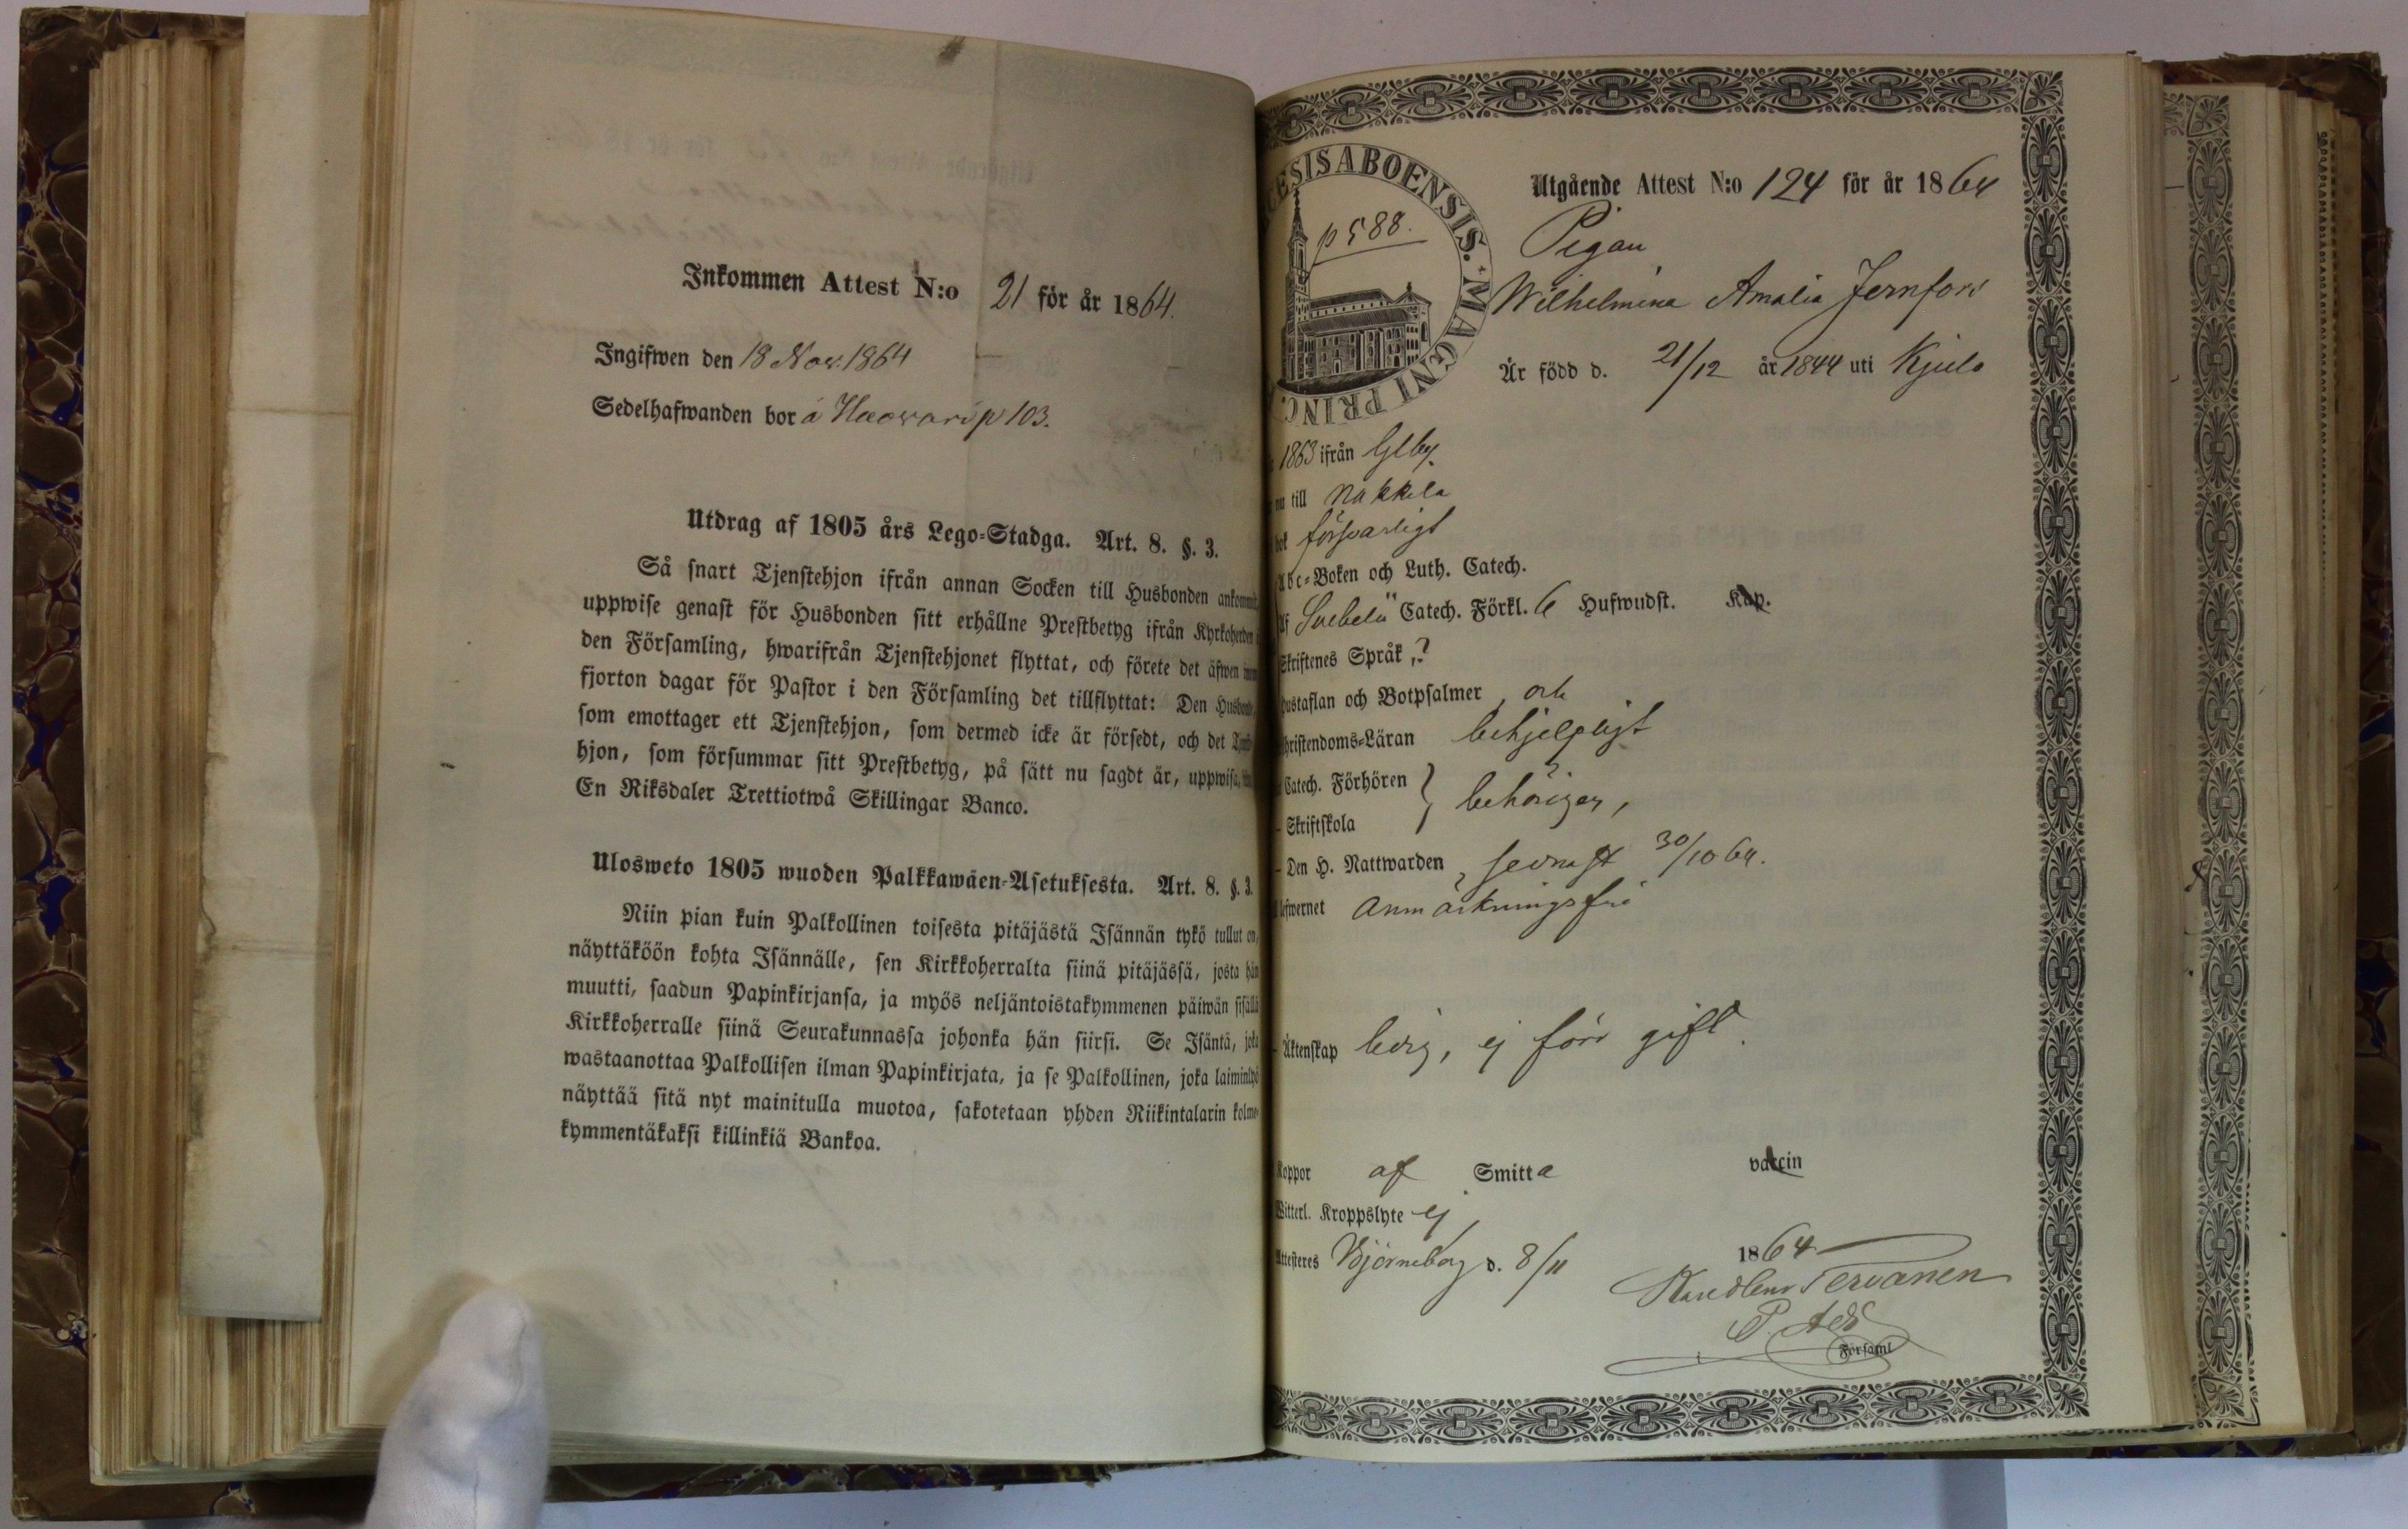 Inkommen Attest N:o 21 för år 1864.
Ingifwen den 18 Nov. 1864
Sedelhafwanden bor å Haavari p 103.
Utdrag af 1805 års Lego-Stadga. Art. 8. §. 3.
Så snart Tjenstehjon ifrån annan Socken till Husbonden
uppwise genast för Husbonden sitt erhållne Prestbetyg ifrån Kyrkoherden
den Församling, hwarifrån Tjenstehjonet flyttat, och förete det äfwen
fjorton dagar för Pastor i den Församling det tillflyttat: Den
som emottager ett Tjenstehjon, som dermed icke är försedt, och det
hjon, som försummar sitt Prestbetyg, på sätt nu sagdt är,
En Riksdaler Trettiotwå Skillingar Banco.
Ulosweto 1805 wuoden Palkkawäen-Asetuksesta. Art. 8. §. 3.
Niin pian kuin Palkollinen toisesta pitäjästä Isännän tykö tullut on,
näyttäköön kohta Isännälle, sen Kirkkoherralta siinä pitäjässä, josta hän
muutti, saadun Papinkirjansa, ja myös neljäntoistakymmenen päiwän sisällä
Kirkkoherralle siinä Seurakunnassa johonka hän siirsi. Se Isäntä, joka
wastaanottaa Palkollisen ilman Papinkirjata, ja se Palkollinen, joka
näyttää sitä nyt mainitulla muotoa, sakotetaan yhden Riikintalarin kolme-
kymmentäkaksi killinkiä Bankoa.
ESIS ABOENSIS. MAGNI PRINC.
p 588.
Utgående Attest N:o 124 för år 1864
Pigan
Wilhelmina Amalia Jernfors
Är född d. 21/12 år 1844 uti Kjulo
1863 ifrån Ulfby
nu till Nakkila
bok försvarligt
Abc-Boken och Luth. Catech.
af Svebelii Catech. Förkl. 6 Hufwudst. Kap.
Skriftenes Språk, ?
Hustaflan och Botpsalmer och
Christendoms-Läran behjelpligt
Catech. Förhören } behörigen,
- Skriftskola
- Den H. Nattwarden, sednast 30/10 64.
lefwernet anmärkningsfri
- Äktenskap ledig, ej förr gift.
Koppor af Smitta vaccin
Witterl. Kroppslyte ej
Attesteres Björneborg d. 8/11 1864
Tervanen
P. Adj.
Församl